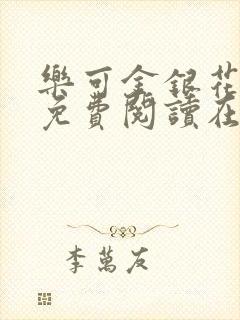 樂可金銀花
免費閱讀在
李萬友